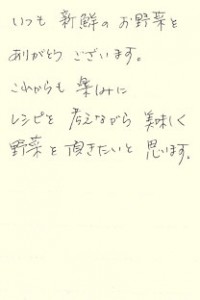 いつも 新鮮の お野菜を
ありがとう ございます。
これからも 楽しみに
レシピを 考えながら 美味しく
野菜を 頂きたいと 思います。